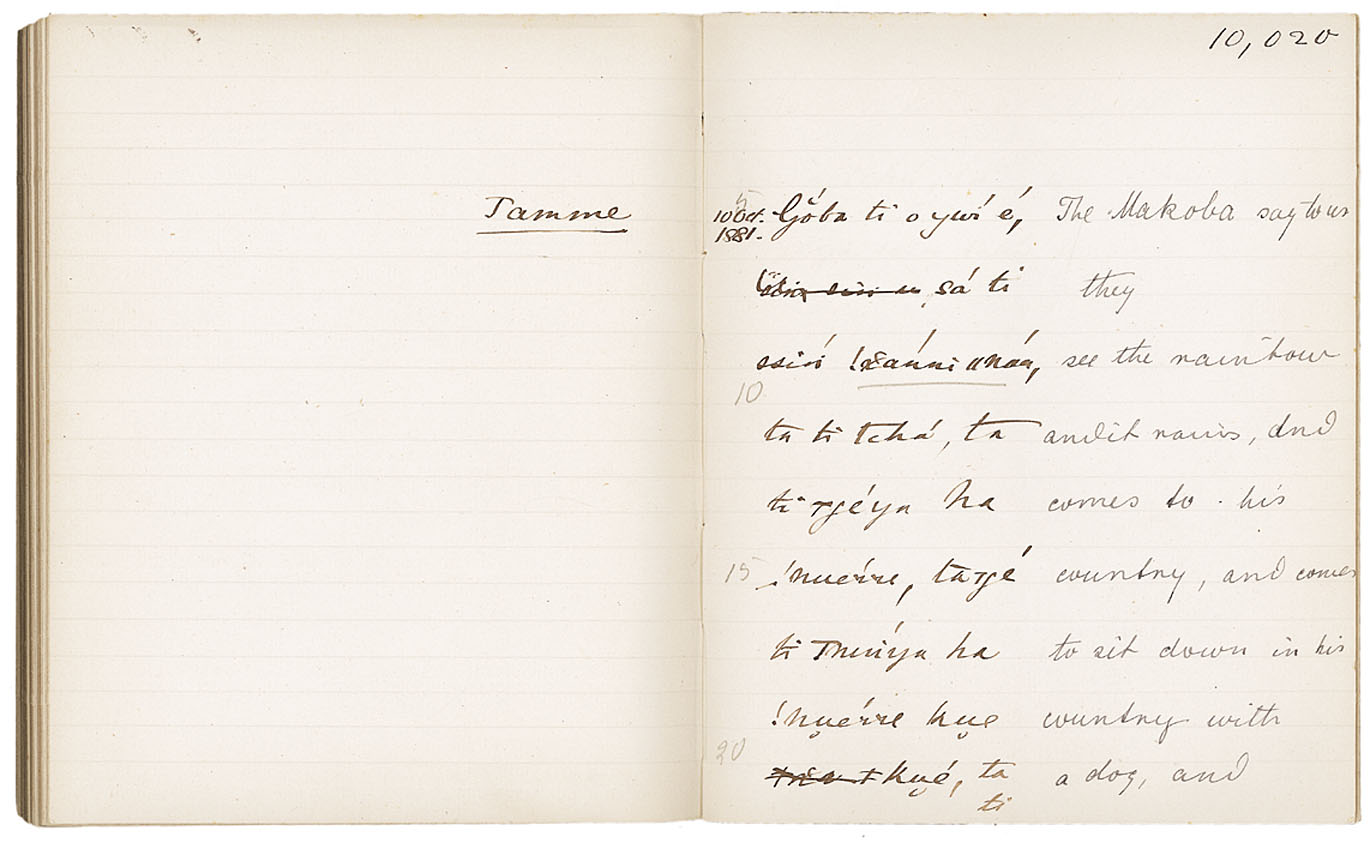 Tamme
10,020
5
10 Oct. 1881.
Góba ti o ywé é, The Makoba say to us
sá ti they
ssin !xánni aná, see the rainbow
10
ta ti tchá, ta and it rains, and
ti comes to his
15
!nuérre, country, and comes
ti ha to sit down in his
!nuérre kue country with
20
kué, ta a dog, and
ti